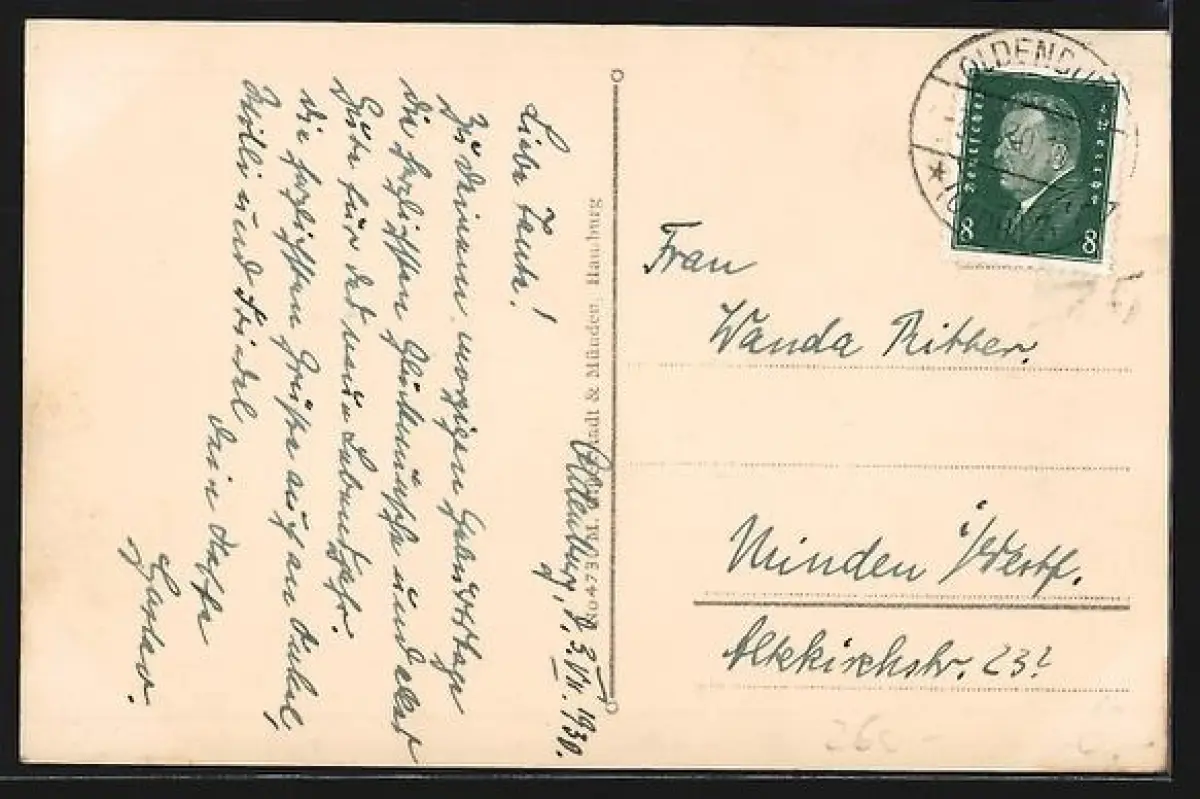 Oldenburg, d. 3.VII.1930.
Liebe Tante!
Zu Deinem morgigen Geburtstage
die herzlichsten Glückwünsche und alles
Gute für das neue Lebensjahr.
Die herzlichsten Grüße auch an Onkel,
Willi und Friedel
Dein Neffe
Gustav.
No 4730 M. & Münden, Hamburg
OLDENBU
Deutsches Reich
8 8
Frau
Wanda Ritter.
Minden i/Westf.
Altekirchstr. 23?